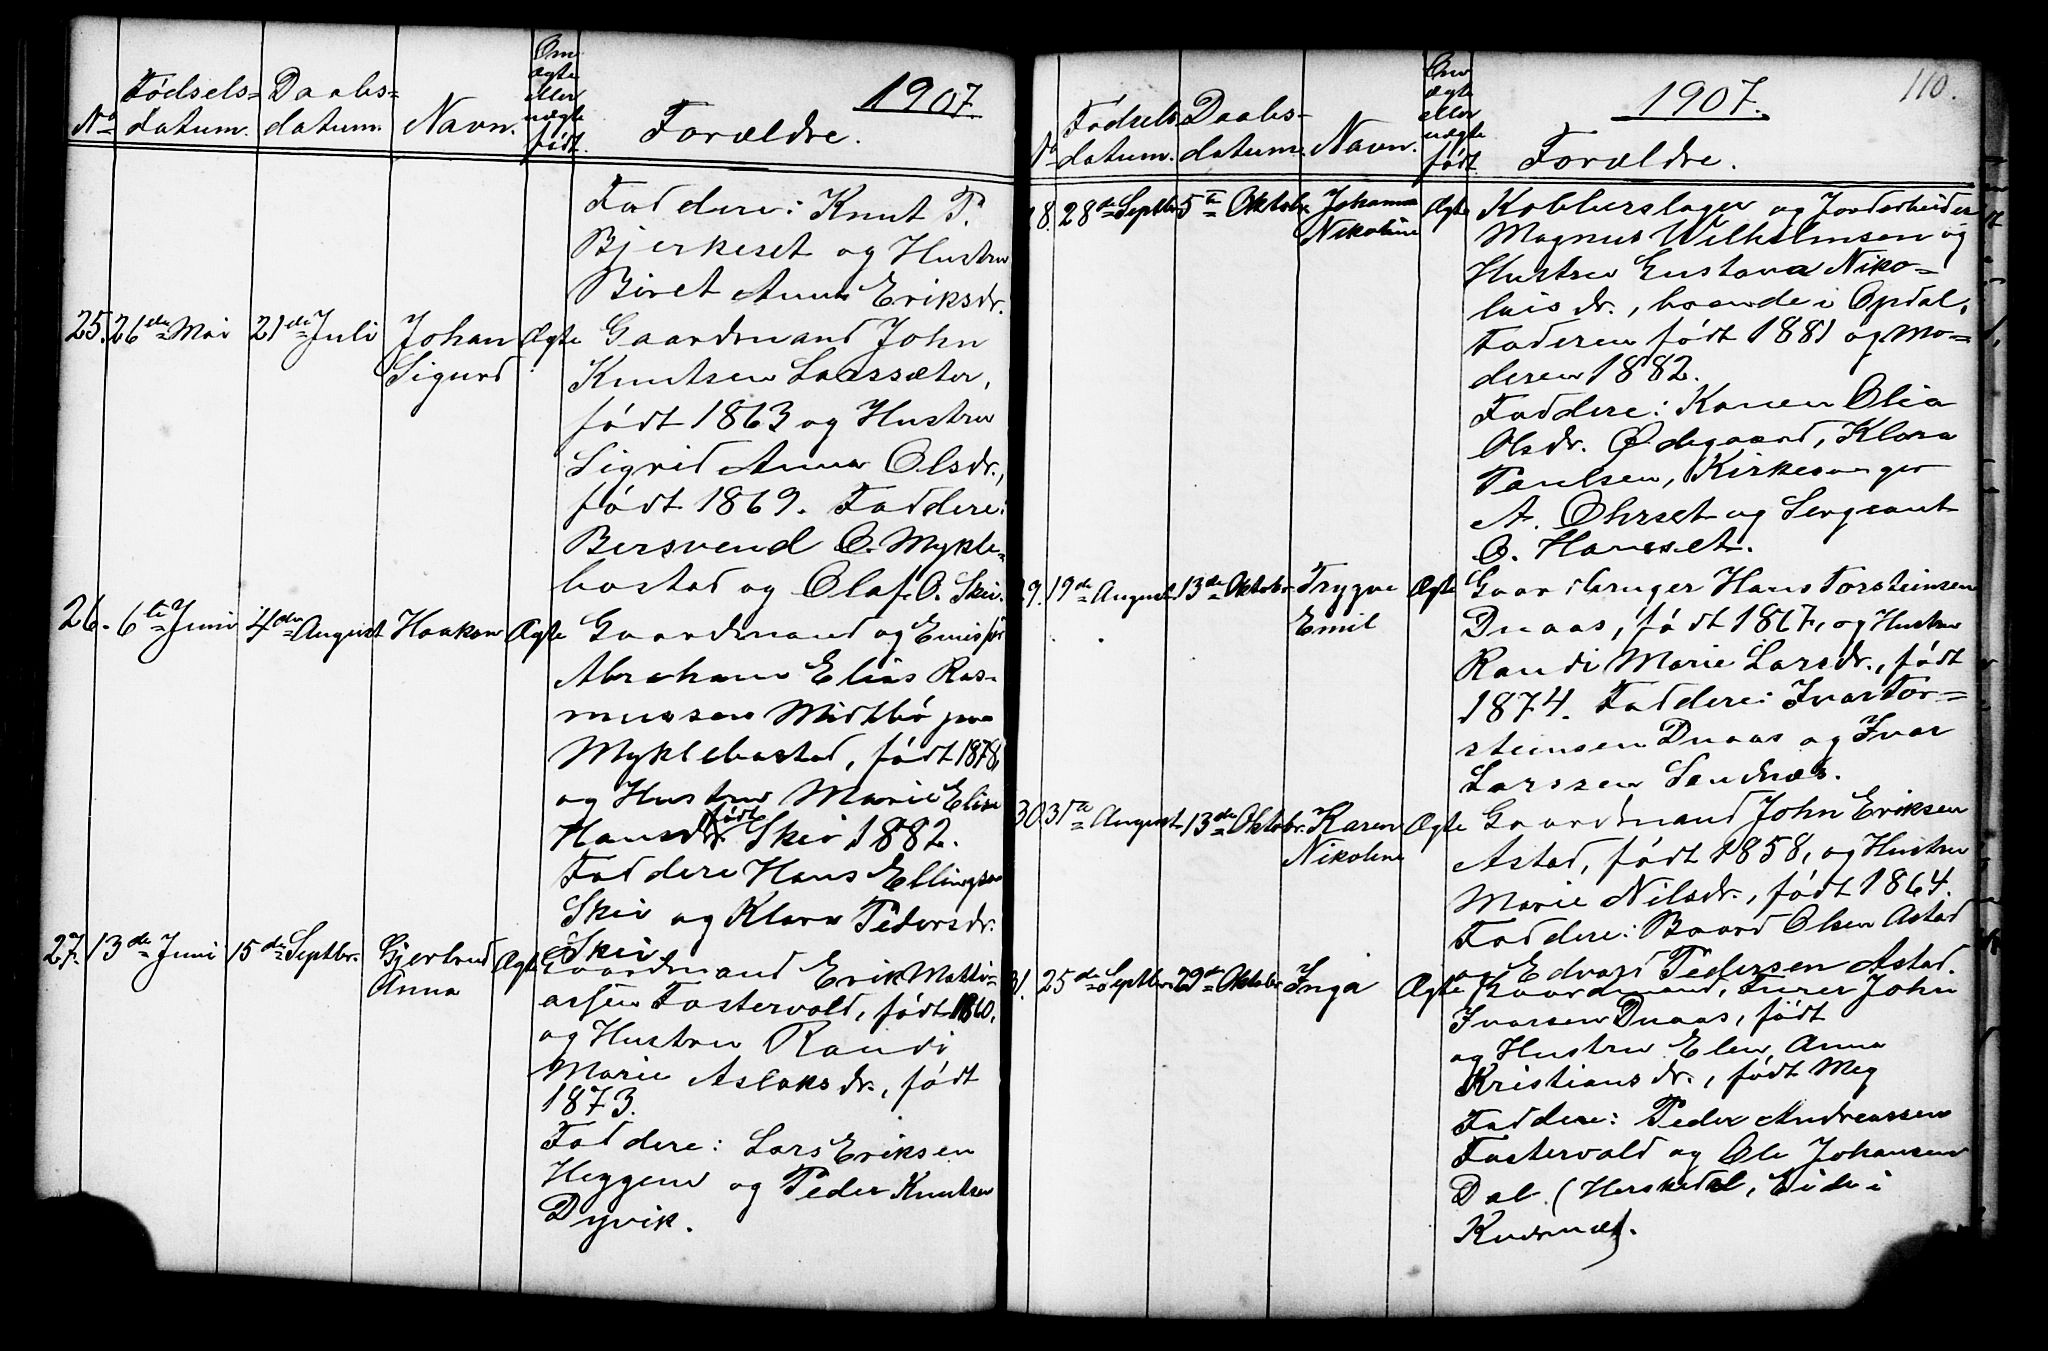 1907.
No Fødsels= datum. Daabs= datum. Navn. Om ægte eller uægte født. Forældre.
Faddere: Knut P.
Bjerkeset og Hustru
Beret Anna Eriksdr.
25. 26de Mai 21de Juli Johan Sigurd Ægte Gaardmand John
Knutsen Laassæter,
født 1863 og Hustru
Sigrid Anna Olsdr.,
født 1869. Faddere:
Bersvend O. Mykle=
bostad og Olaf O. Skei.
26. 6te Juni 4de August Haakon Ægte Gaardmand og Emissær
Abraham Elias Ras-
mussen Midtbø paa
Myklebostad, født 1878,
og Hustru Marie Elise
Hansdr. født Skei 1882.
Faddere Hans Ellingsen
Skei og Klara Pedersdr.
Skei
27. 13de Juni 15de Septbr. Gjertrud Anna Ægte Gaardmand Erik Matti-
assen Fostervold, født 1860,
og Hustru Randi
Marie Aslaksdr., født
1873.
Faddere: Lars Eriksen
Heggem og Peder Knutsen
Dyvik.
110.
1907.
No Fødsels datum. Daabs- datum. Navn. Om ægte eller uægte født. Forældre.
28. 28de Septbr 5te Oktobr. Johanna Nikoline Ægte Kobberslager og Jordarbeider
Magnus Wilhelmsen og
Hustru Gustava Niko-
laisdr., boende i Opdal,
Faderen født 1881 og Mo-
deren 1882.
Faddere: Konen Olia
Olsdr. Ødegaard, Klara
Paulsen, Kirkesanger
A. Ohrset og Sergeant
O. Hansset.
29. 19de August 13de Oktobr Trygve Emil Ægte Gaardbruger Hans Torsteinsen
Dnaas, født 1867, og Hustru
Randi Marie Larsdr., født
1874. Faddere: Ivar Tor-
steinsen Dnaas og Ivar
Larssen Sandnæs.
30. 31te August 13de Oktobr. Karen Nikoline Ægte Gaardmand John Eriksen
Astad, født 1858, og Hustru
Marie Nilsdr., født 1864.
Faddere: Baard Olsen Astad
og Edvard Pedersen Astad.
31. 25de Septbr. 29de Oktobr Inga Ægte Gaardmand, Lærer John
Ivarsen Dnaas, født
og Hustru Elen Anna
Kristiansdr., født Meg
Faddere: Peder Andreassen
Fostervold og Ole Johansen
Dal. (Herskedal, Eide i
Kvernæs).